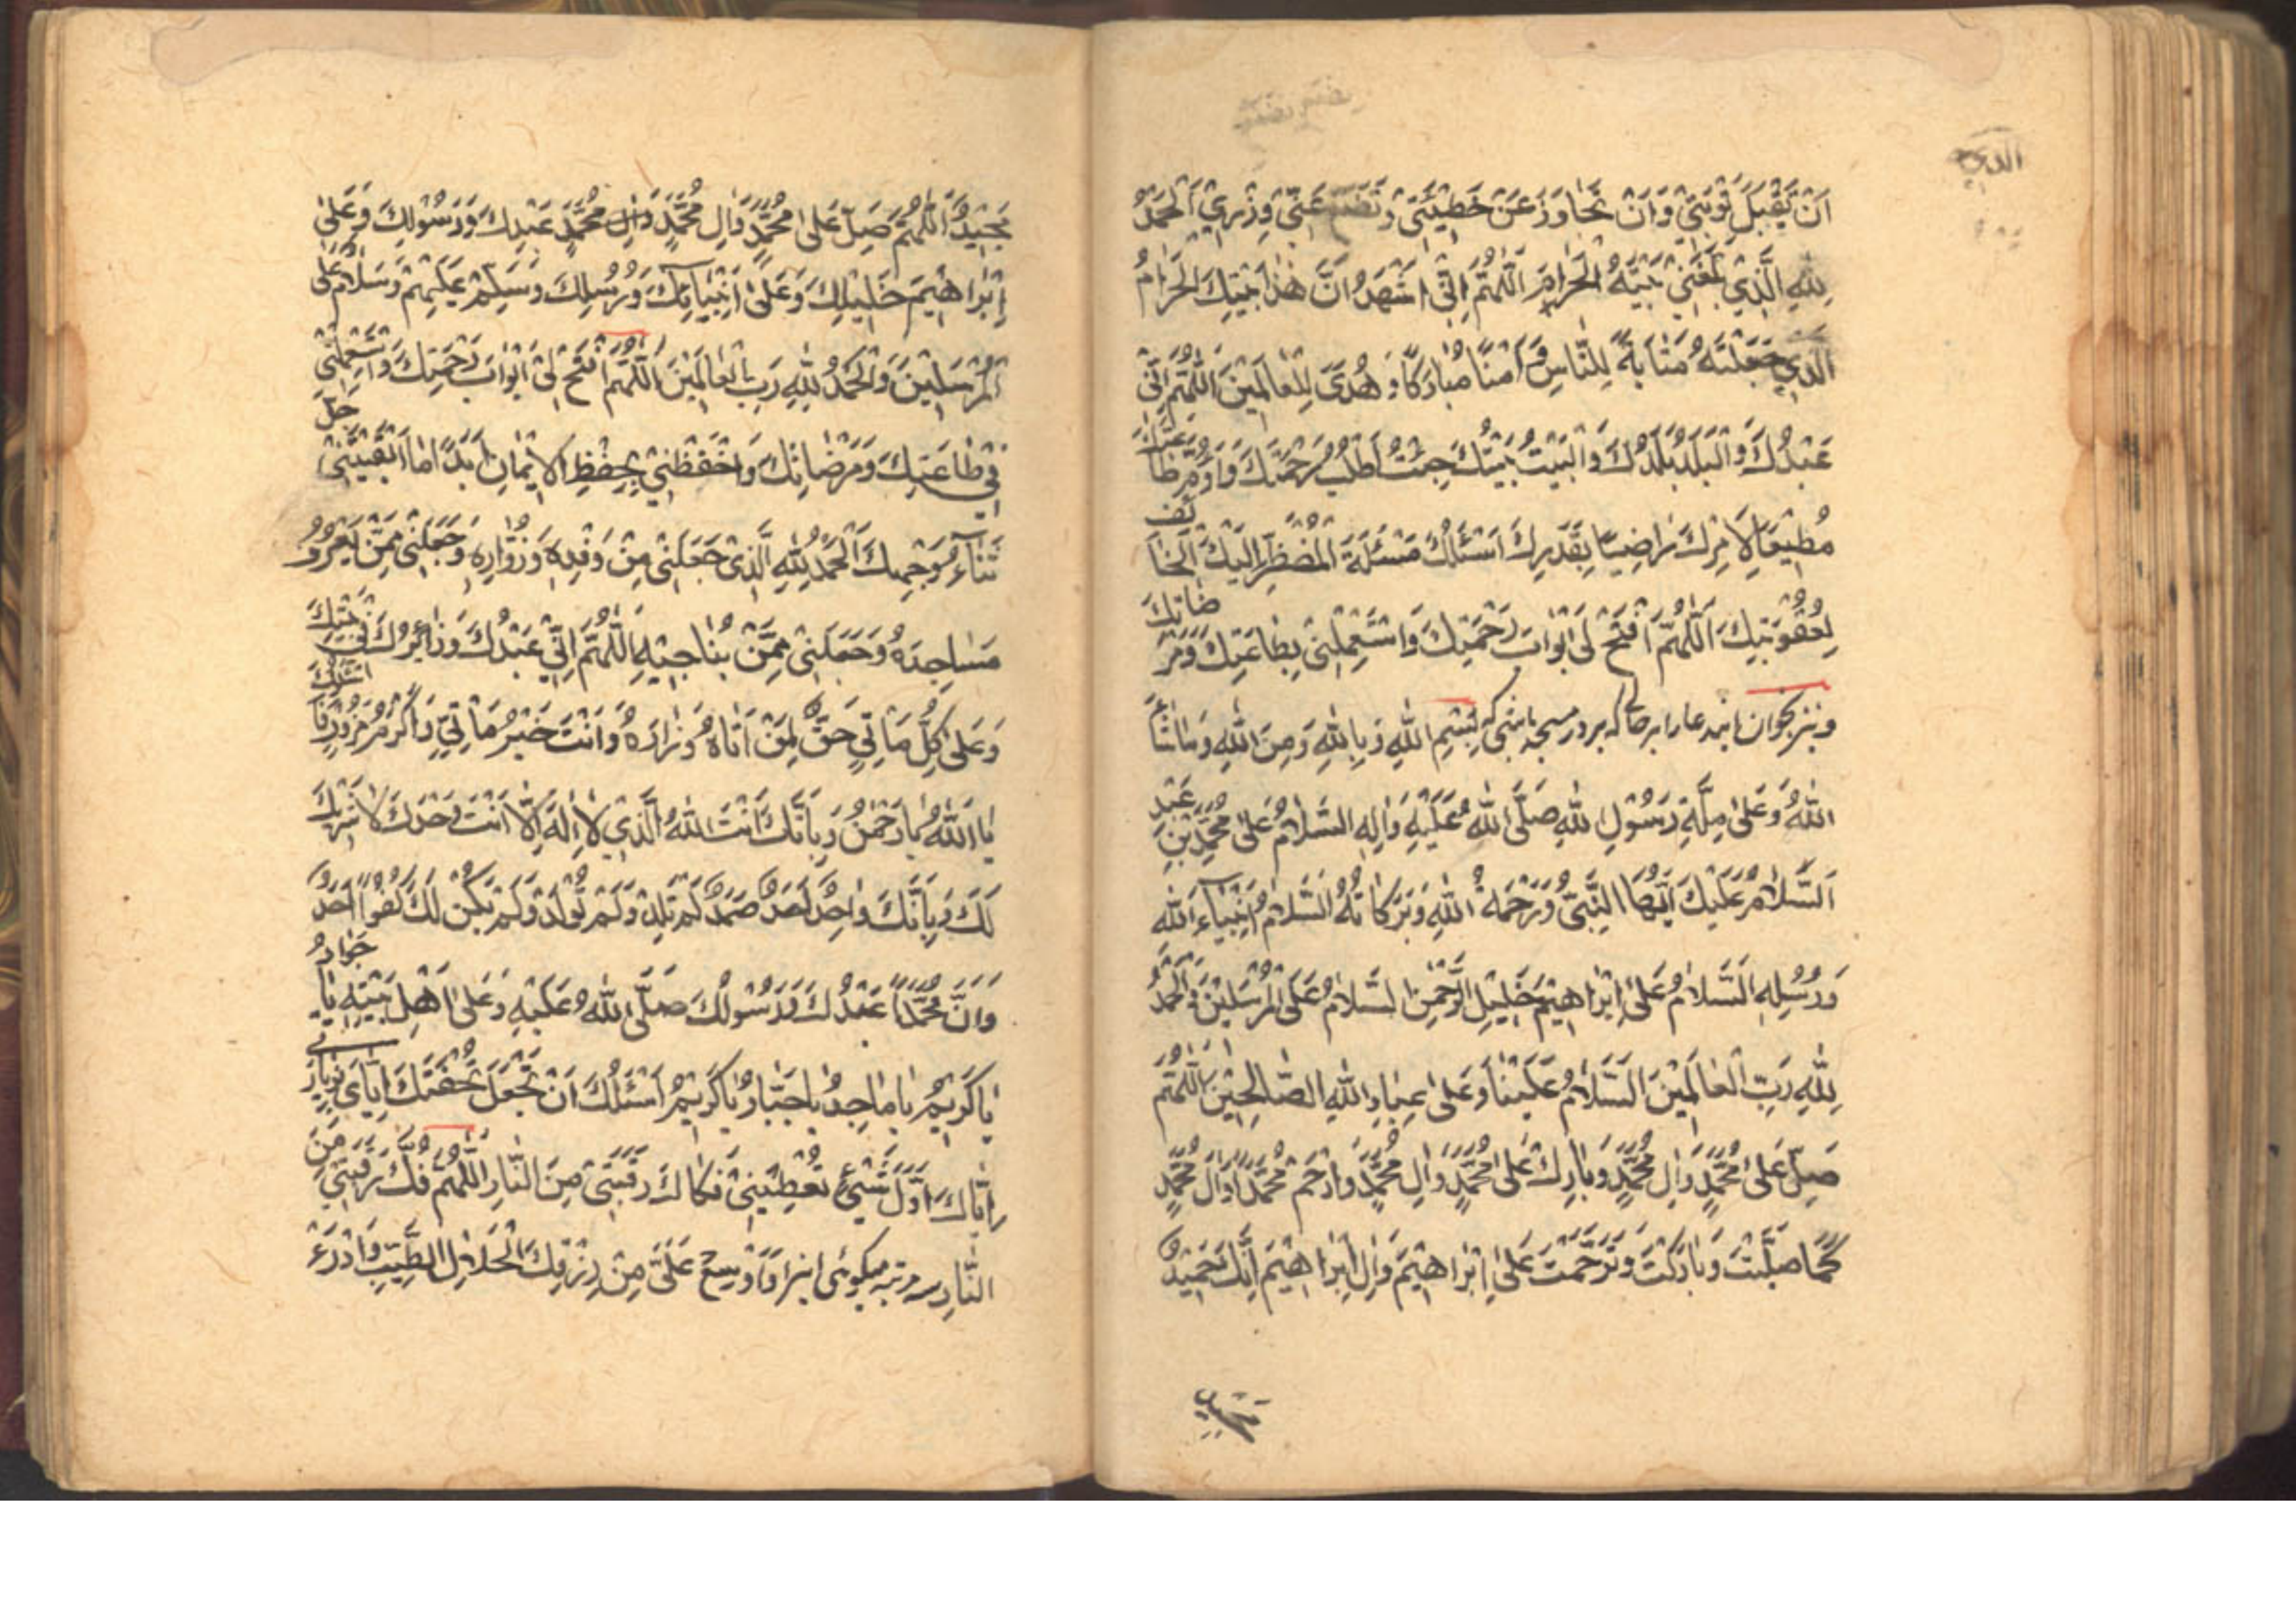 الذي
تضع
اَنْ تَقْبَلَ تَوْبَتِیْ وَاَنْ تَجٰاوَزَ عَنْ خَطٖیْئَتِیْ وَ تَضَعَ عَنّٖیْ وِزْرٖيْ اَلْحَمْدُ
لِلّٰهِ الَّذٖيْ بَلَّغَنٖیْ بَیْتَهُ الْحَرٰامَ اَللّٰهُمَّ اِنّٖیْ اُشْهِدُ اَنَّ هٰذٰا بَیْتُكَ الْحَرٰامُ
الَّذٖيْ جَعَلْتَهُ مَثٰابَةً لِلنّٰاسِ وَ اَمْنًا مُبٰارَكًا وَ هُدًی لِلْعٰالَمٖیْنَ اَللّٰهُمَّ اِنّٖیْ
عَبْدُكَ وَالْبَلَدُ بَلَدُكَ وَالْبَیْتُ بَیْتُكَ جِئْتُ اَطْلُبُ رَحْمَتَكَ وَ اَؤُمُّ طٰاعَتَكَ
مُطٖیْعًا لِاَمْرِكَ رٰاضِیًا بِقَدَرِكَ اَسْئَلُكَ مَسْئَلَةَ الْمُضْطَرِّ اِلَیْكَ الْخٰائِفِ
لِعُقُوْبَتِكَ اَللّٰهُمَّ افْتَحْ لٖی اَبْوٰابَ رَحْمَتِكَ وَاسْتَعْمِلْنٖیْ بِطٰاعَتِكَ وَ مَرْضٰاتِكَ
و نیز بخوان این دعا را در حالی که بر در مسجد باشی که بِسْمِ اللّٰهِ وَ بِاللّٰهِ وَ مِنَ اللّٰهِ وَ مٰا شٰآءَ
اللّٰهُ وَ عَلیٰ مِلَّةِ رَسُوْلِ اللّٰهِ صَلَّی اللّٰهُ عَلَیْهِ وَاٰلِهِ السَّلٰامُ عَلیٰ مُحَمَّدِ بْنِ عَبْدِ
اَلسَّلٰامُ عَلَیْكَ اَیُّهَا النَّبِیُّ وَ رَحْمَةُ اللّٰهِ وَ بَرَكٰاتُهُ اَلسَّلٰامُ اَنْبِیٰآءِ اللّٰهِ
وَ رُسُلِهِ اَلسَّلٰامُ عَلیٰ اِبْرٰاهٖیْمَ خَلٖیْلِ الرَّحْمٰنِ السَّلٰامُ عَلَی الْمُرْسَلٖیْنَ وَالْحَمْدُ
لِلّٰهِ رَبِّ الْعٰالَمٖیْنَ السَّلٰامُ عَلَیْنٰا وَ عَلیٰ عِبٰادِ اللّٰهِ الصّٰالِحٖیْنَ اَللّٰهُمَّ
صَلِّ عَلیٰ مُحَمَّدٍ وَ اٰلِ مُحَمَّدٍ وَ بٰارِكْ عَلیٰ مُحَمَّدٍ وَ اٰلِ مُحَمَّدٍ وَارْحَمْ مُحَمَّدًا وَ اٰلَ مُحَمَّدٍ
كَمٰا صَلَّیْتَ وَ بٰارَكْتَ وَ تَرَحَّمْتَ عَلیٰ اِبْرٰاهٖیْمَ وَ اٰلِ اِبْرٰاهٖیْمَ اِنَّكَ حَمٖیْدٌ
مَجٖیْدٌ اَللّٰهُمَّ صَلِّ عَلیٰ مُحَمَّدٍ وَ اٰلِ مُحَمَّدٍ وَ اٰلِ مُحَمَّدٍ عَبْدِكَ وَ رَسُوْلِكَ وَ عَلیٰ
اِبْرٰاهٖیْمَ خَلٖیْلِكَ وَ عَلیٰ اَنْبِیٰآئِكَ وَ رُسُلِكَ وَ سَلِّمْ عَلَیْهِمْ وَ سَلٰامٌ عَلَی
الْمُرْسَلٖیْنَ وَالْحَمْدُ لِلّٰهِ رَبِّ الْعٰالَمٖیْنَ اَللّٰهُمَّ افْتَحْ لٖیْ اَبْوٰابَ رَحْمَتِكَ وَاسْتَعْمِلْنٖیْ
فٖیْ طٰاعَتِكَ وَ مَرْضٰاتِكَ وَاحْفَظْنٖیْ بِحِفْظِ الْاٖیْمٰانِ اَبَدًا مٰا اَبْقَیْتَنٖیْ جَلَّ
ثَنٰآءُ وَجْهِكَ اَلْحَمْدُ لِلّٰهِ الَّذٖیْ جَعَلَنٖیْ مِنْ وَفْدِهٖ وَ زُوّٰارِهٖ وَ جَعَلَنٖیْ مِمَّنْ یَعْمُرُ
مَسٰاجِدَهُ وَ جَعَلَنٖیْ مِمَّنْ یُنٰاجٖیْهِ اَللّٰهُمَّ اِنّٖیْ عَبْدُكَ وَ زٰائِرُكَ فٖیْ بَیْتِكَ
وَ عَلیٰ كُلِّ مَاْتِیٍّ حَقٌّ لِمَنْ اَتٰاهُ وَ زٰارَهُ وَ اَنْتَ خَیْرُ مَاْتِیٍّ وَ اَكْرَمُ مَزُوْرٍ فَاَسْئَلُكَ
یٰا اَللّٰهُ یٰا رَحْمٰنُ وَ بِاَنَّكَ اَنْتَ اللّٰهُ الَّذٖيْ لٰا اِلٰهَ اِلّٰا اَنْتَ وَحْدَكَ لٰا شَرٖیْكَ
لَكَ وَ بِاَنَّكَ وٰاحِدٌ اَحَدٌ صَمَدٌ لَمْ تَلِدْ وَ لَمْ تُوْلَدْ وَ لَمْ یَكُنْ لَكَ كُفُوًا اَحَدٌ
وَ اَنَّ مُحَمَّدًا عَبْدُكَ وَ رَسُوْلُكَ صَلَّی اللّٰهُ عَلَیْهِ وَ عَلیٰ اَهْلِ بَیْتِهِ یٰا جَوٰادُ
یٰا كَرٖیْمُ یٰا مٰاجِدُ یٰا جَبّٰارُ یٰا كَرٖیْمُ اَسْئَلُكَ اَنْ تَجْعَلَ تُحْفَتَكَ اِیّٰايَ بِزِیٰارَتٖی
اِیّٰاكَ اَوَّلَ شَیْءٍ تُعْطٖیْنٖیْ فَكٰاكَ رَقَبَتٖیْ مِنَ النّٰارِ اَللّٰهُمَّ فُكَّ رَقَبَتٖیْ مِنَ
النّٰارِ سه مرتبه میگوئی اینرا وَ اَوْسِعْ عَلَیَّ مِنْ رِزْقِكَ الْحَلٰالِ الطَّیِّبِ وَادْرَءْ